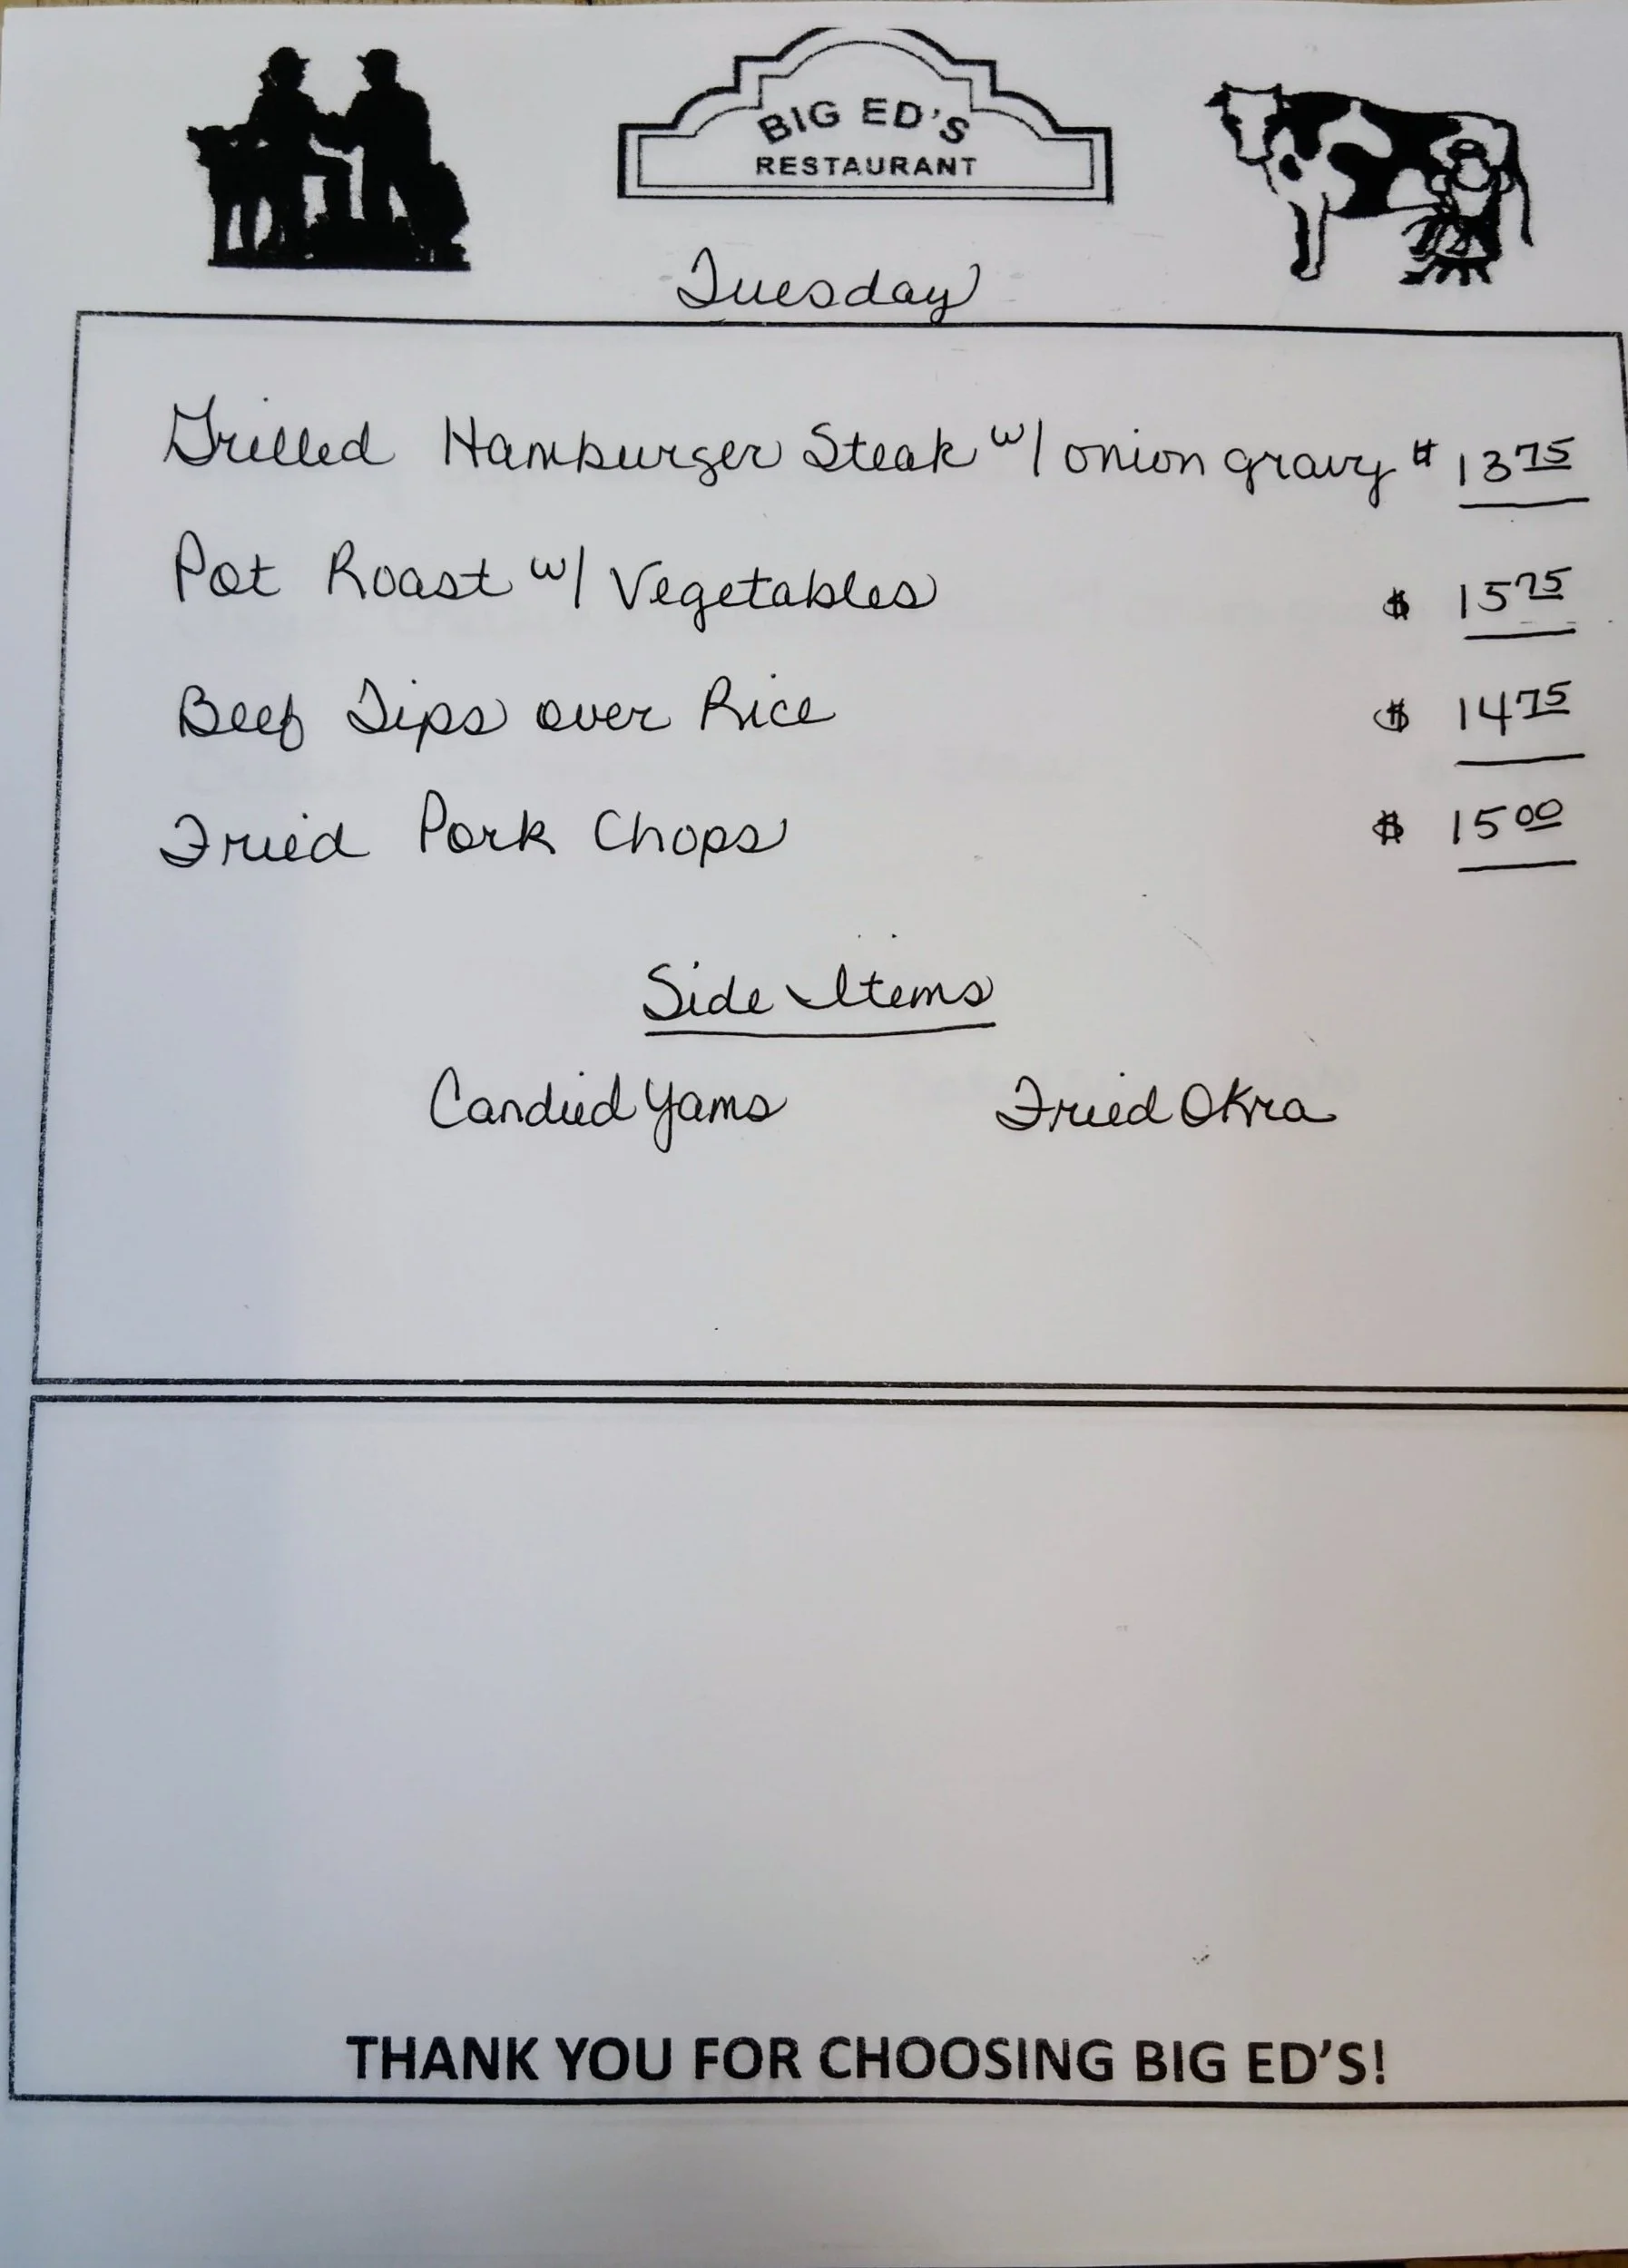 BIG ED'S
RESTAURANT
Tuesday
Grilled Hamburger Steak w/ onion gravy $ 13 75
Pot Roast w/ Vegetables $ 15 75
Beef Tips over Rice $ 14 75
Fried Pork Chops $ 15 00
Side Items
Candied Yams Fried Okra
THANK YOU FOR CHOOSING BIG ED'S!